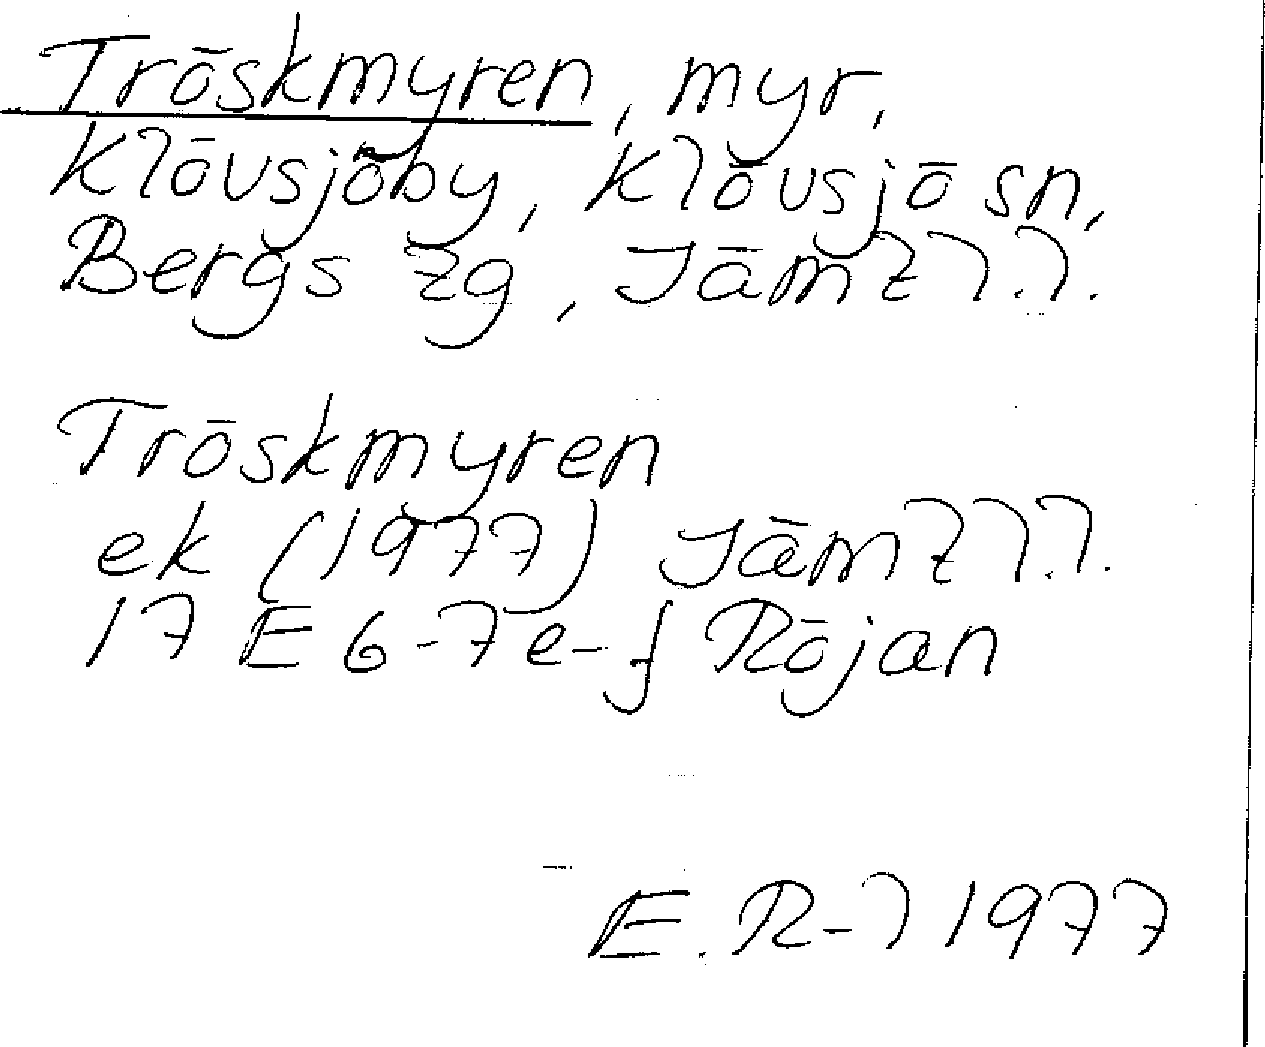 Tröskmyren, myr,
Klövsjöby, Klövsjö sn,
Bergs tg, Jämtl.l.
Tröskmyren
ek (1977) Jämtl.l.
17 E 6-7e-f Röjan
E. R-l 1977